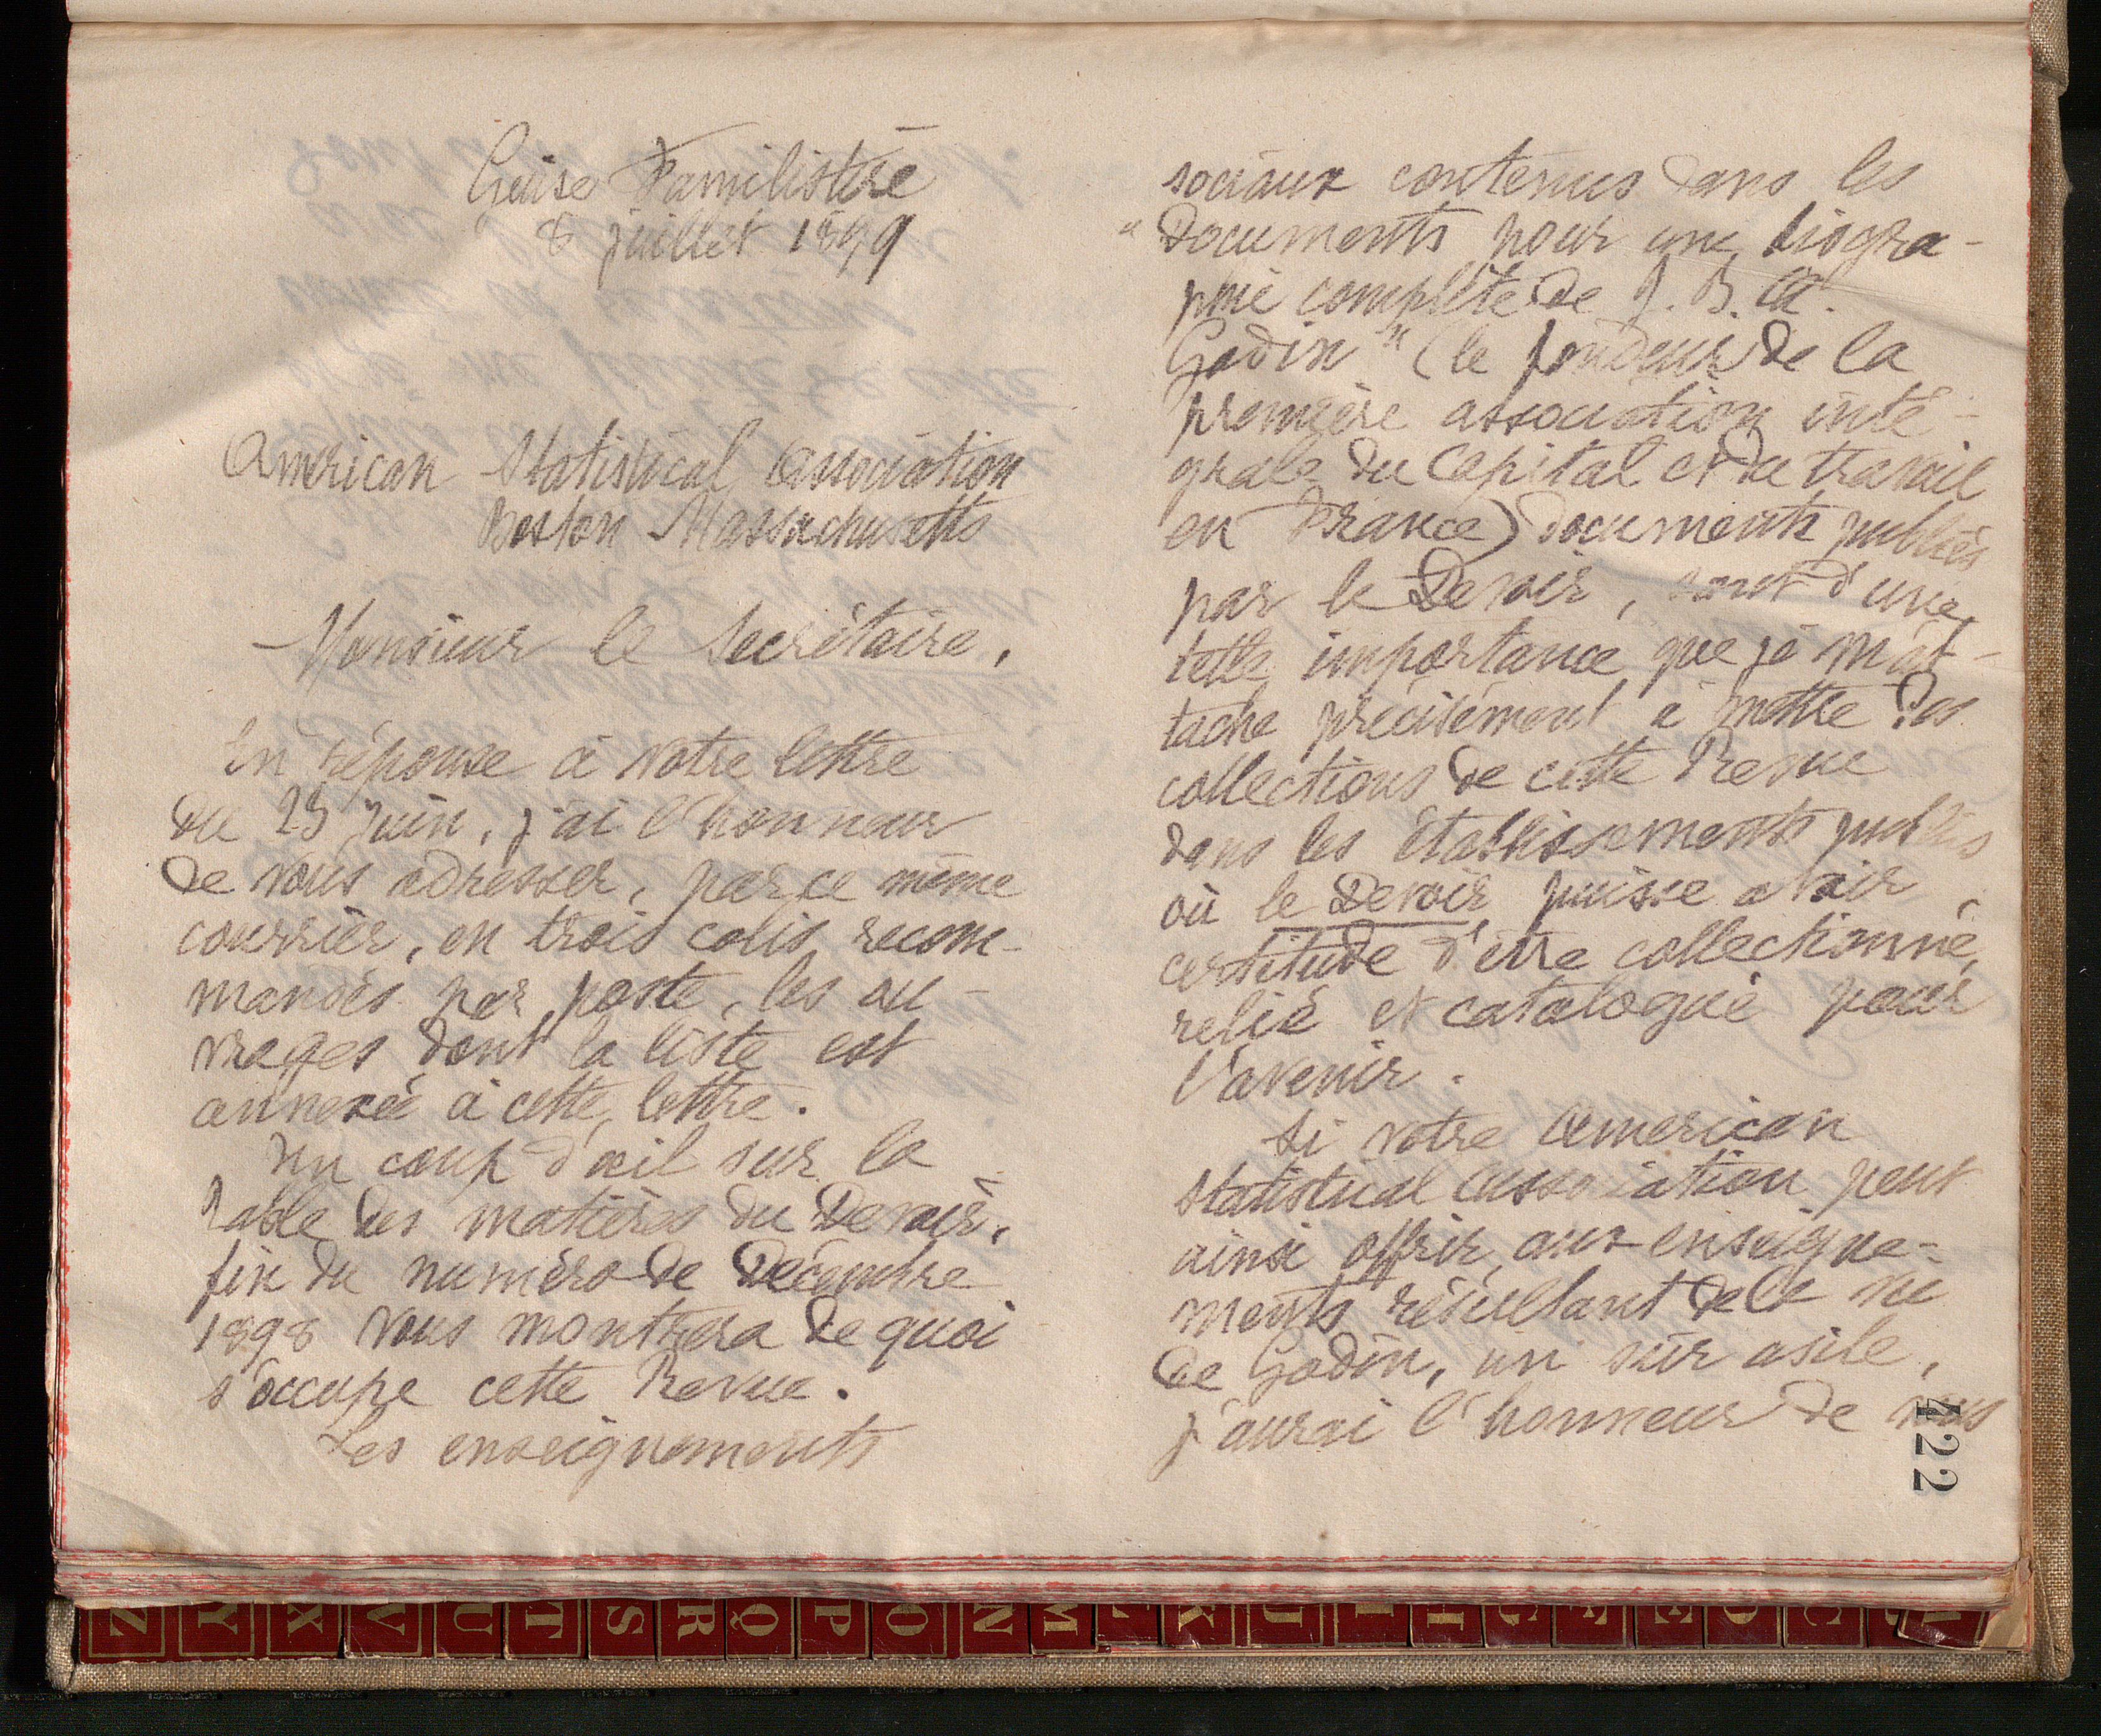 Guise Familistère
8 juillet 1899
American Statistical Association
Boston Massachusetts
Monsieur le Secrétaire,
En réponse à votre lettre
du 23 juin, j'ai l'honneur
de vous adresser, par ce même
courrier, en trois colis recom-
mandés par poste, les ou-
vrages dont la liste est
annexée à cette lettre.
Un coup d'œil sur la
Table des matières du Devoir,
fin du numéro de Décembre
1898 vous montrera de quoi
s'occupe cette Revue.
Les enseignements
sociaux contenus dans les
"Documents pour une biogra-
phie complète de J. B. A.
Godin" (le fondeur de la
première association inté-
grale du Capital et du travail
en France) documents publiés
par le Devoir, sont d'une
telle importance que je m'at-
tache précisément à mettre des
collections de cette Revue
dans les établissements publics
où le Devoir puisse avoir
certitude d'être collectionné,
relié et catalogué pour
l'avenir.
Si votre American
Statistical Association peut
ainsi offrir, aux enseigne-
ments résultant de la vie
de Godin, un sûr asile,
j'aurai l'honneur de vous
422
Z Y X V U T S R Q P O N M L K J I H G F E D C B A